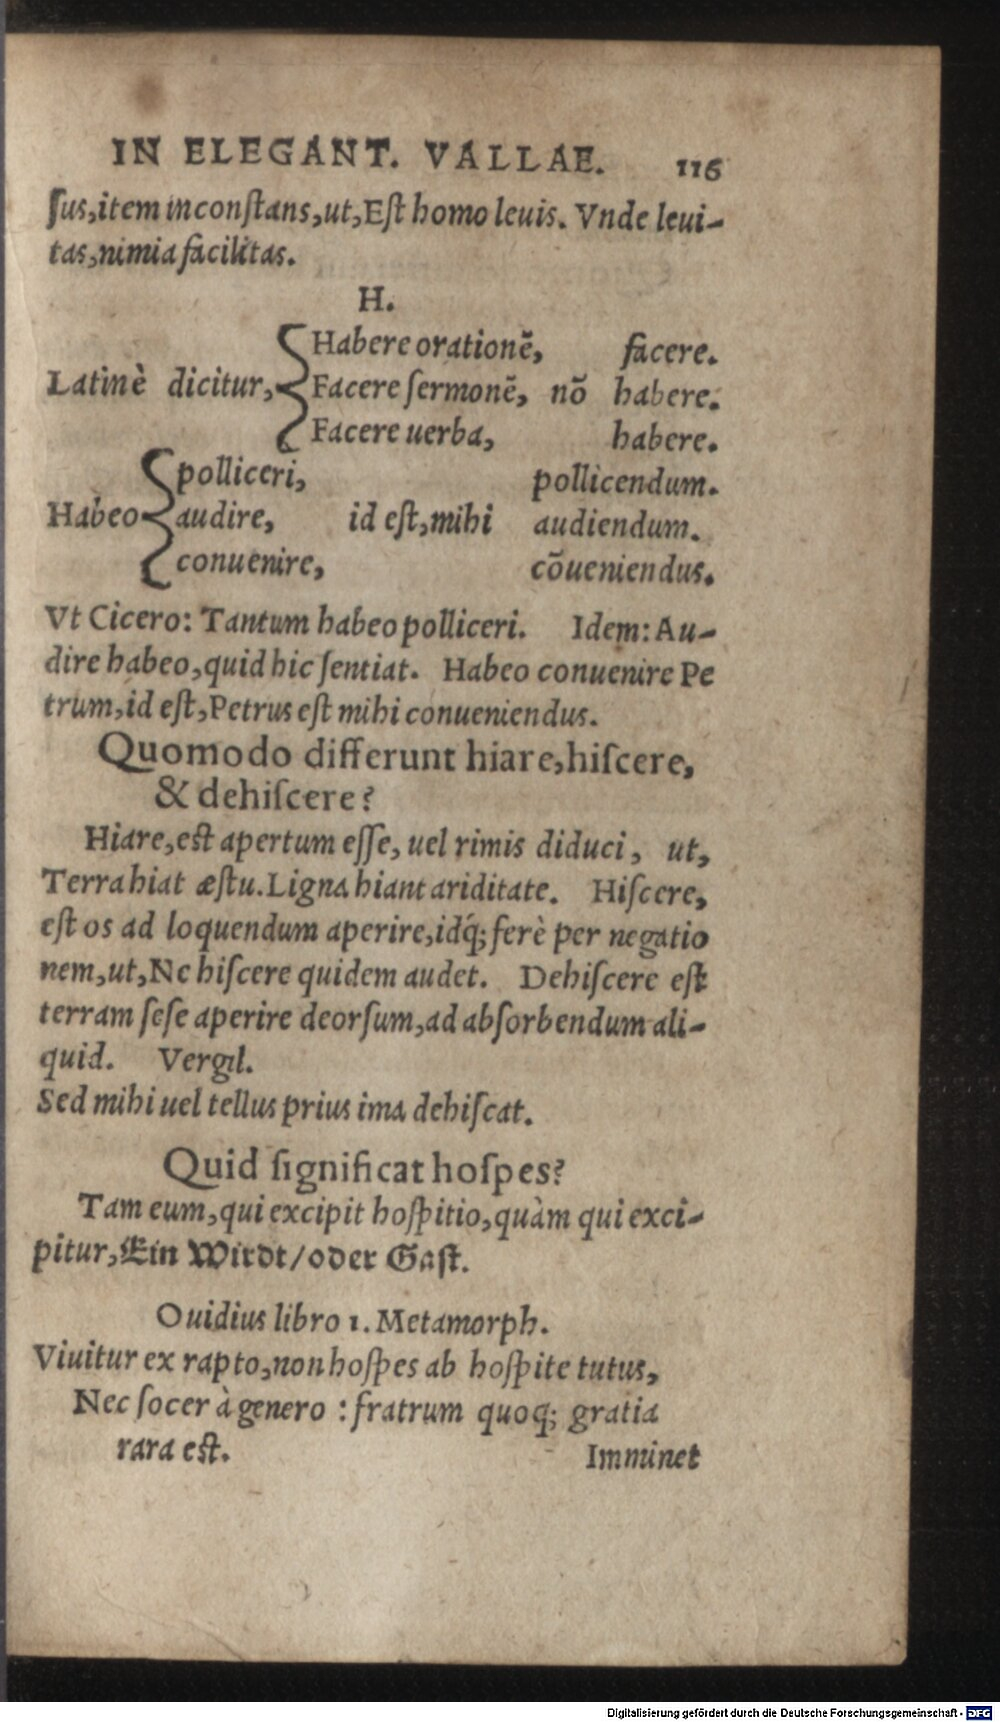 IN ELEGANT. VALLAE. 116
ſus,item inconſtans,ut,Eſt homo leuis. Vnde leui-
tas,nimia facilitas.
H.
Habere orationē, facere.
Latinè dicitur, Facere ſermonē, nō habere.
Facere uerba, habere.
polliceri, pollicendum.
Habeo audire, id eſt,mihi audiendum.
conuenire, cōueniendus.
Vt Cicero: Tantum habeo polliceri. Idem: Au-
dire habeo,quid hic ſentiat. Habeo conuenire Pe
trum,id eſt,Petrus eſt mihi conueniendus.
Quomodo differunt hiare,hiſcere,
& dehiſcere?
Hiare,eſt apertum eſſe, uel rimis diduci, ut,
Terra hiat æſtu.Ligna hiant ariditate. Hiſcere,
eſt os ad loquendum aperire,idq́; ferè per negatio
nem,ut,Ne hiſcere quidem audet. Dehiſcere eſt
terram ſeſe aperire deorſum,ad abſorbendum ali-
quid. Vergil.
Sed mihi uel tellus prius ima dehiſcat.
Quid ſignificat hoſpes?
Tam eum,qui excipit hoſpitio,quàm qui exci-
pitur,Ein Wirdt/oder Gaſt.
Ouidius libro 1. Metamorph.
Viuitur ex rapto,non hoſpes ab hoſpite tutus,
Nec ſocer à genero : fratrum quoq; gratia
rara eſt. Imminet
Digitalisierung gefördert durch die Deutsche Forschungsgemeinschaft - DFG